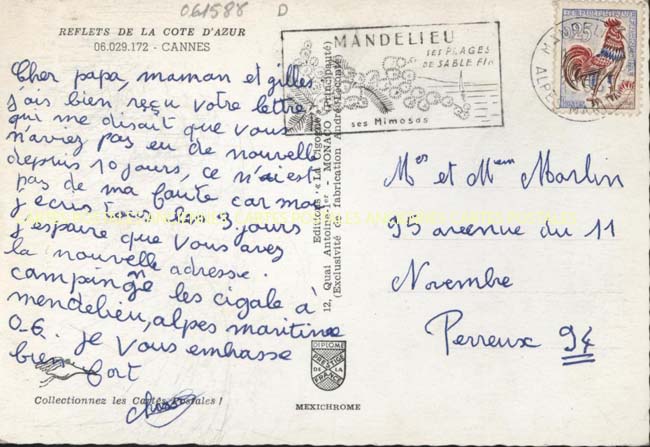 061588 D
REFLETS DE LA COTE D'AZUR
06.029.172 - CANNES
Cher papa, maman et gilles
j'ais bien reçu votre lettre
qui me disait que vous
n'aviez pas eu de nouvelle
depuis 10 jours, ce n'ai est
pas de ma faute car moi
j'écris tous les 3 jours
j'espaire que vous avez
la nouvelle adresse.
campingne les cigale à
mendelieu, alpes maritime
0-6. je vous embrasse
bien fort
Collectionnez les Cartes Postales !
Editions "La Cigogne"
12, Quai Antoine-1er - MONACO (Principauté)
(Exclusivité de fabrication André Leconte)
DIPLOME
PRESTIGE
DE LA
FRANCE
MEXICHROME
MANDELIEU
SES PLAGES
DE SABLE FIN
ses Mimosas
0,25
Mes et Mem Marlin
95 avenue du 11
Novembre
Perreux 94